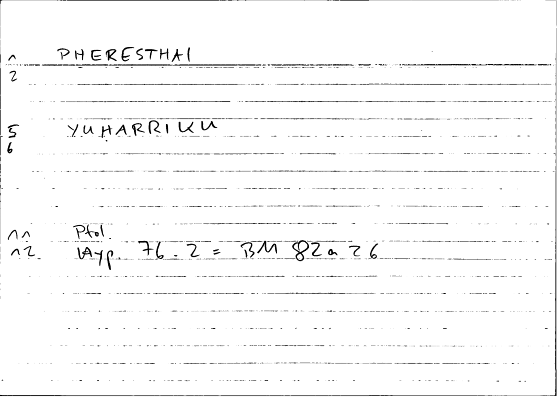 1 PHERESTHAI
2
5 YUHARRIKU
6
11 Ptol.
12. Hyp. 76.2 = BM 82a26